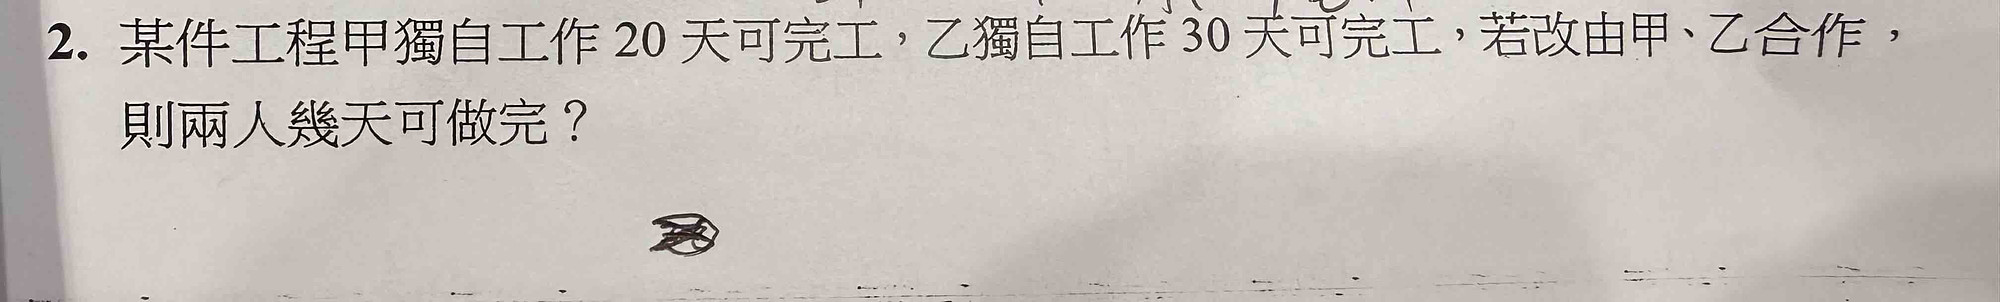 2. 某件工程甲獨自工作 20 天可完工，乙獨自工作 30 天可完工，若改由甲、乙合作，
則兩人幾天可做完？